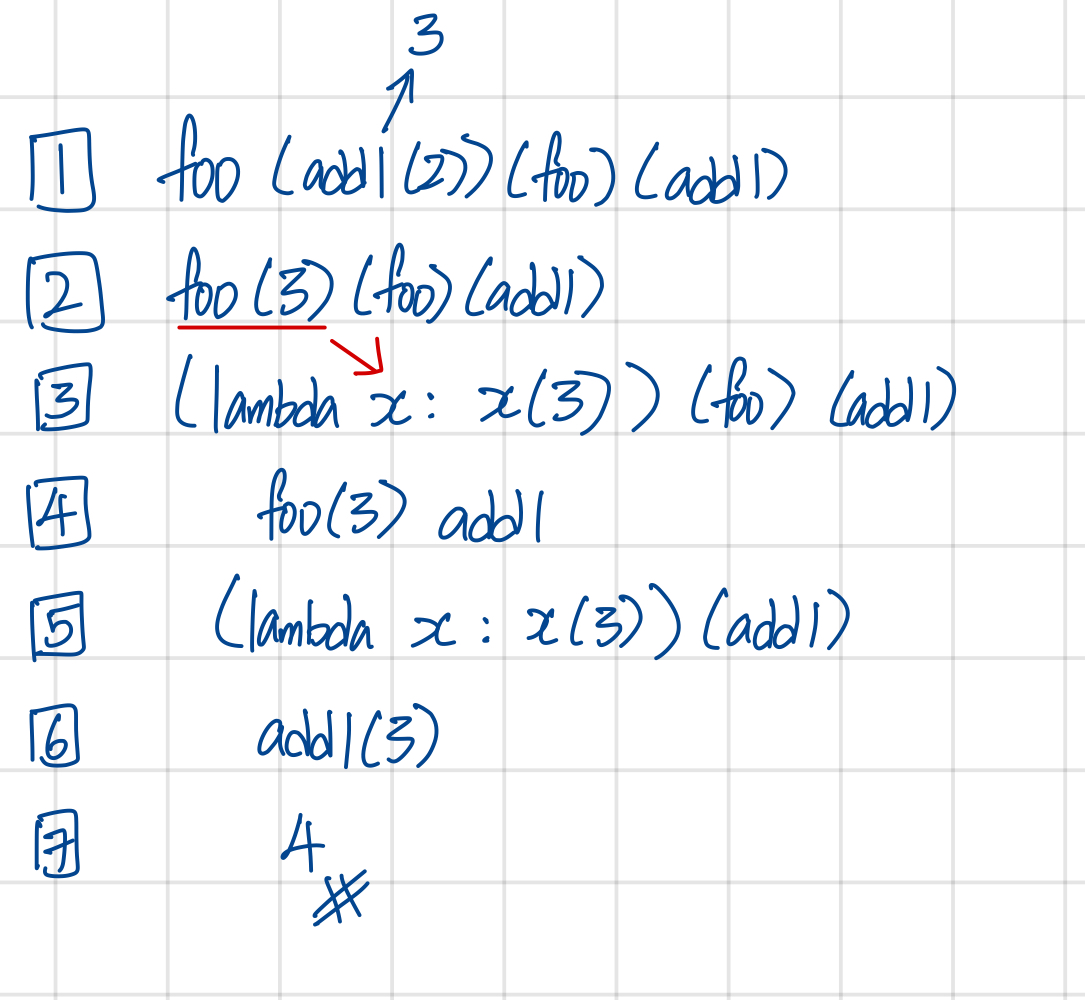 3
1 foo (add1(2))(foo)(add1)
2 foo(3)(foo)(add1)
3 (lambda x: x(3))(foo)(add1)
4 foo(3) add1
5 (lambda x: x(3))(add1)
6 add1(3)
7 4
#